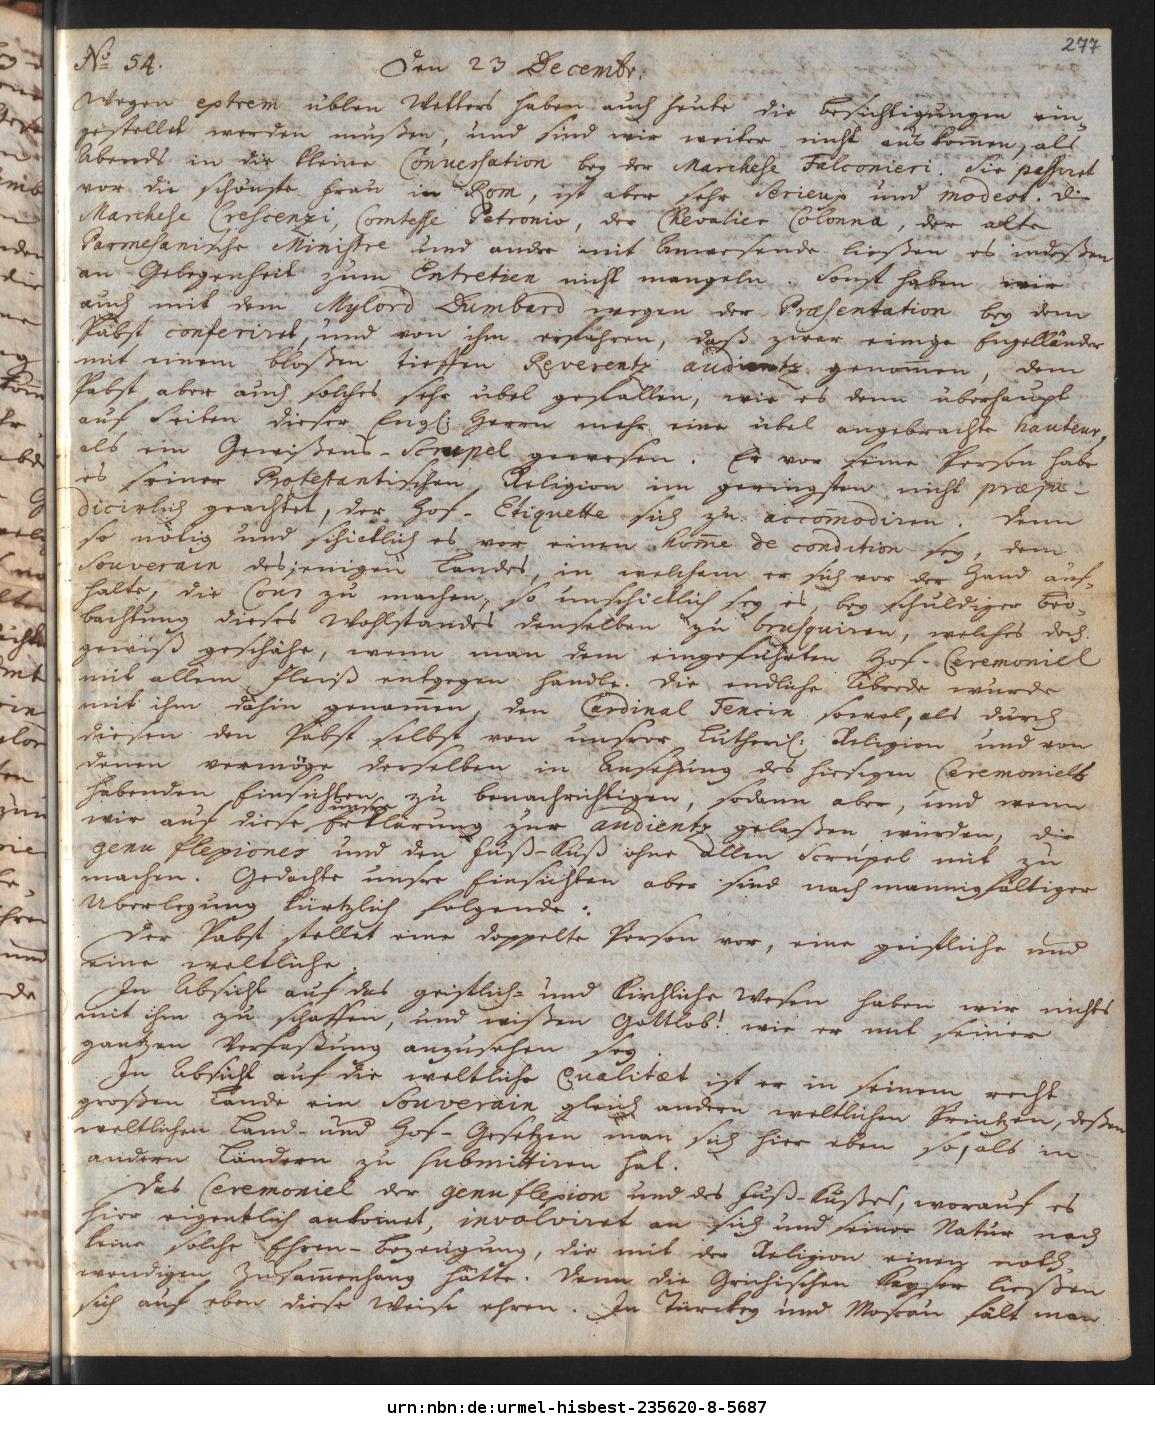 277
No 54. Den 23 Decembr.
Wegen extrem üblen Wetters haben auch heute die Besichtigungen ein-
gestellet werden müßen, und sind wir weiter nicht auskom̄en, als
Abends in die kleine Conversation bey der Marchese Falconieri. Sie passiret
vor die schönste Frau in Rom, ist aber sehr serieux und modest. Die
Marchese Crescenzi, Comtesse Petronio, der Chevalier Colonna, der alte
Parmesanische Ministre und andre mit Anwesende ließen es indeßen
an Gelegenheit zum Entretien nicht mangeln. Sonst haben wir
auch mit dem Mylord Dumbard wegen der Præsentation bey dem
Pabst conferiret, und von ihm erfahren, daß zwar einige Engelländer
mit einem bloßen tieffen Reverentz audientz genom̄en, dem
Pabst aber auch solches sehr übel gefallen, wie es denn überhaupt
auf Seiten dieser Engl: Herrn mehr eine übel angebrachte hauteur,
als ein Gewißens-Scrupel gewesen. Er vor seine Person habe
es seiner Protestantischen Religion im geringsten nicht præju-
dicirlich geachtet, der Hof-Etiquette sich zu accom̄odiren. Denn
so nötig und schicklich es vor einen hom̄e de condition sey, dem
Souverain desjenigen Landes, in welchem er sich vor der Hand auf-
halte, die Cour zu machen, so unschicklich sey es, bey schuldiger Beo-
bachtung dieses Wohlstandes denselben zu brusquiren, welches doch
gewiß geschähe, wenn man dem eingeführten Hof-Ceremoniel
mit allem Fleiß entgegen handle. Die endliche Abrede wurde
mit ihm dahin genom̄en, den Cardinal Tencin sowol, als durch
diesen den Pabst selbst von unserer Lutheris: Religion und von
denen vermöge derselben in Ansehung des hiesigen Ceremoniels
habenden Einsichten zu benachrichtigen, sodann aber, und wenn
wir auf diese unsre Erklärung zur audientz gelaßen würden, die
genu flexiones und den Fuß-Kuß ohne allen Scrupel mit zu
machen. Gedachte unsre Einsichten aber sind nach mannigfältiger
Uberlegung kürtzlich folgende:
Der Pabst stellet eine doppelte Person vor, eine geistliche und
eine weltliche.
In Absicht auf das geistlich- und kirchliche Wesen haben wir nichts
mit ihm zu schaffen, und wißen Gottlob! wie er mit seiner
gantzen Verfaßung anzusehen sey.
In Absicht auf die weltliche Qualitæt ist er in seinem recht
großen Lande ein Souverain gleich andern weltlichen Printzen, deßen
weltlichen Land- und Hof-Gesetzen man sich hier eben so, als in
andern Ländern zu submittiren hat.
Das Ceremoniel der genuflexion und des Fuß-Kußes, worauf es
hier eigentlich ankom̄et, involviret an sich und seiner Natur nach
keine solche Ehren-Bezeugung, die mit der Religion einen noth-
wendigen Zusam̄enhang hätte. Denn die Grichischen Kayser ließen
sich auf eben diese Weise ehren. In Türckey und Moscau fält man
urn:nbn:de:urmel-hisbest-235620-8-5687